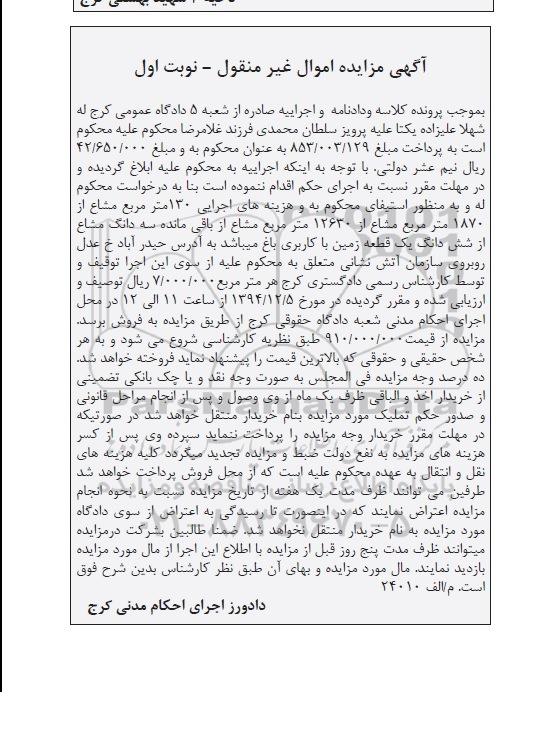 ناحیه ۲ شهید بهشتی کرج
آگهی مزایده اموال غیر منقول - نوبت اول
بموجب پرونده کلاسه ودادنامه و اجراییه صادره از شعبه ۵ دادگاه عمومی کرج له
شهلا علیزاده یکتا علیه پرویز سلطان محمدی فرزند غلامرضا محکوم علیه محکوم
است به پرداخت مبلغ ۸۵۳/۰۰۳/۱۲۹ به عنوان محکوم به و مبلغ ۴۲/۶۵۰/۰۰۰
ریال نیم عشر دولتی. با توجه به اینکه اجراییه به محکوم علیه ابلاغ گردیده و
در مهلت مقرر نسبت به اجرای حکم اقدام ننموده است بنا به درخواست محکوم
له و به منظور استیفای محکوم به و هزینه های اجرایی ۱۳۰متر مربع مشاع از
۱۸۷۰ متر مربع مشاع از ۱۲۶۳۰ متر مربع مشاع از باقی مانده سه دانگ مشاع
از شش دانگ یک قطعه زمین با کاربری باغ میباشد به آدرس حیدر آباد خ عدل
روبروی سازمان آتش نشانی متعلق به محکوم علیه از سوی این اجرا توقیف و
توسط کارشناس رسمی دادگستری کرج هر متر مربع ۷/۰۰۰/۰۰۰ ریال توصیف و
ارزیابی شده و مقرر گردیده در مورخ ۱۳۹۴/۱۲/۵ از ساعت ۱۱ الی ۱۲ در محل
اجرای احکام مدنی شعبه دادگاه حقوقی کرج از طریق مزایده به فروش برسد.
مزایده از قیمت۹۱۰/۰۰۰/۰۰۰ طبق نظریه کارشناسی شروع می شود و به هر
شخص حقیقی و حقوقی که بالاترین قیمت را پیشنهاد نماید فروخته خواهد شد.
ده درصد وجه مزایده فی المجلس به صورت وجه نقد و یا چک بانکی تضمینی
از خریدار اخذ و الباقی ظرف یک ماه از وی وصول و پس از انجام مراحل قانونی
و صدور حکم تملیک مورد مزایده بنام خریدار منتقل خواهد شد در صورتیکه
در مهلت مقرر خریدار وجه مزایده را پرداخت ننماید سپرده وی پس از کسر
هزینه های مزایده به نفع دولت ضبط و مزایده تجدید میگردد کلیه هزینه های
نقل و انتقال به عهده محکوم علیه است که از محل فروش پرداخت خواهد شد
طرفین می توانند ظرف مدت یک هفته از تاریخ مزایده نسبت به نحوه انجام
مزایده اعتراض نمایند که در اینصورت تا رسیدگی به اعتراض از سوی دادگاه
مورد مزایده به نام خریدار منتقل نخواهد شد. ضمنا طالبین بشرکت درمزایده
میتوانند ظرف مدت پنج روز قبل از مزایده با اطلاع این اجرا از مال مورد مزایده
بازدید نمایند. مال مورد مزایده و بهای آن طبق نظر کارشناس بدین شرح فوق
است. م/الف ۲۴۰۱۰
دادورز اجرای احکام مدنی کرج